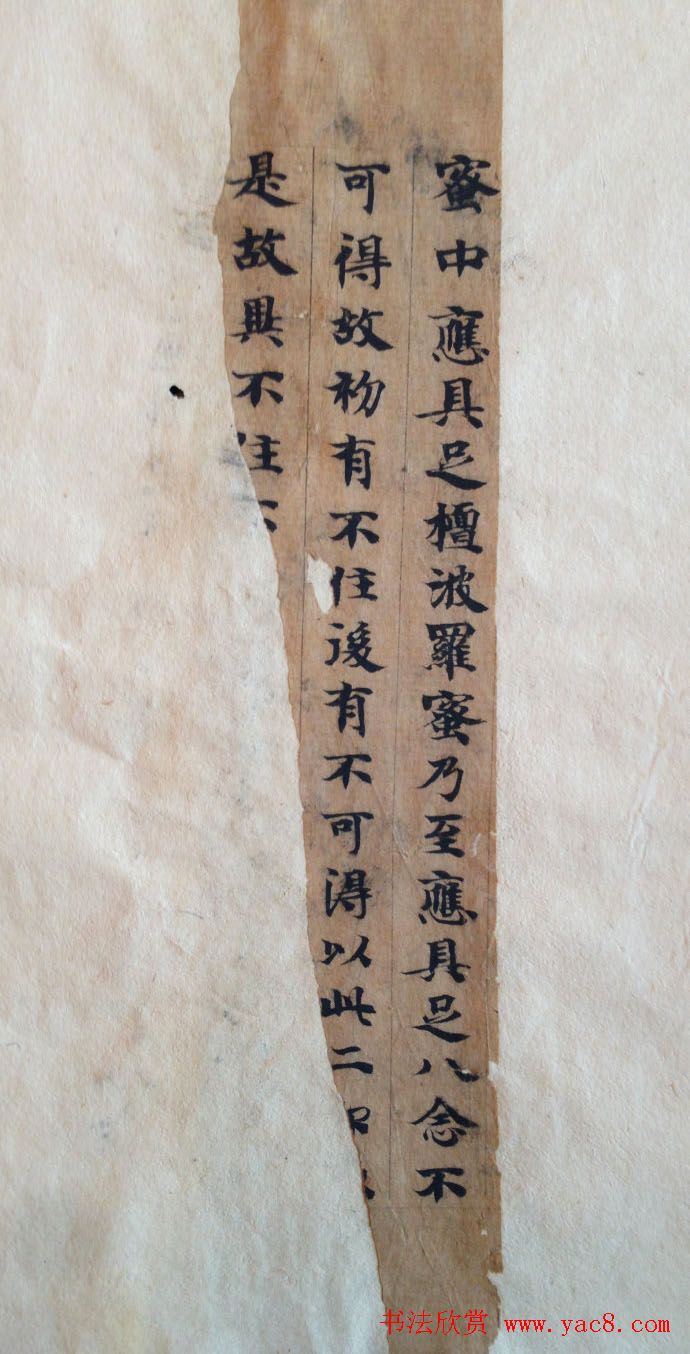 蜜中應具足檀波羅蜜乃至應具足八念不
可得故初有不住後有不可得以此二
是故異不住
书法欣赏 www.yac8.com